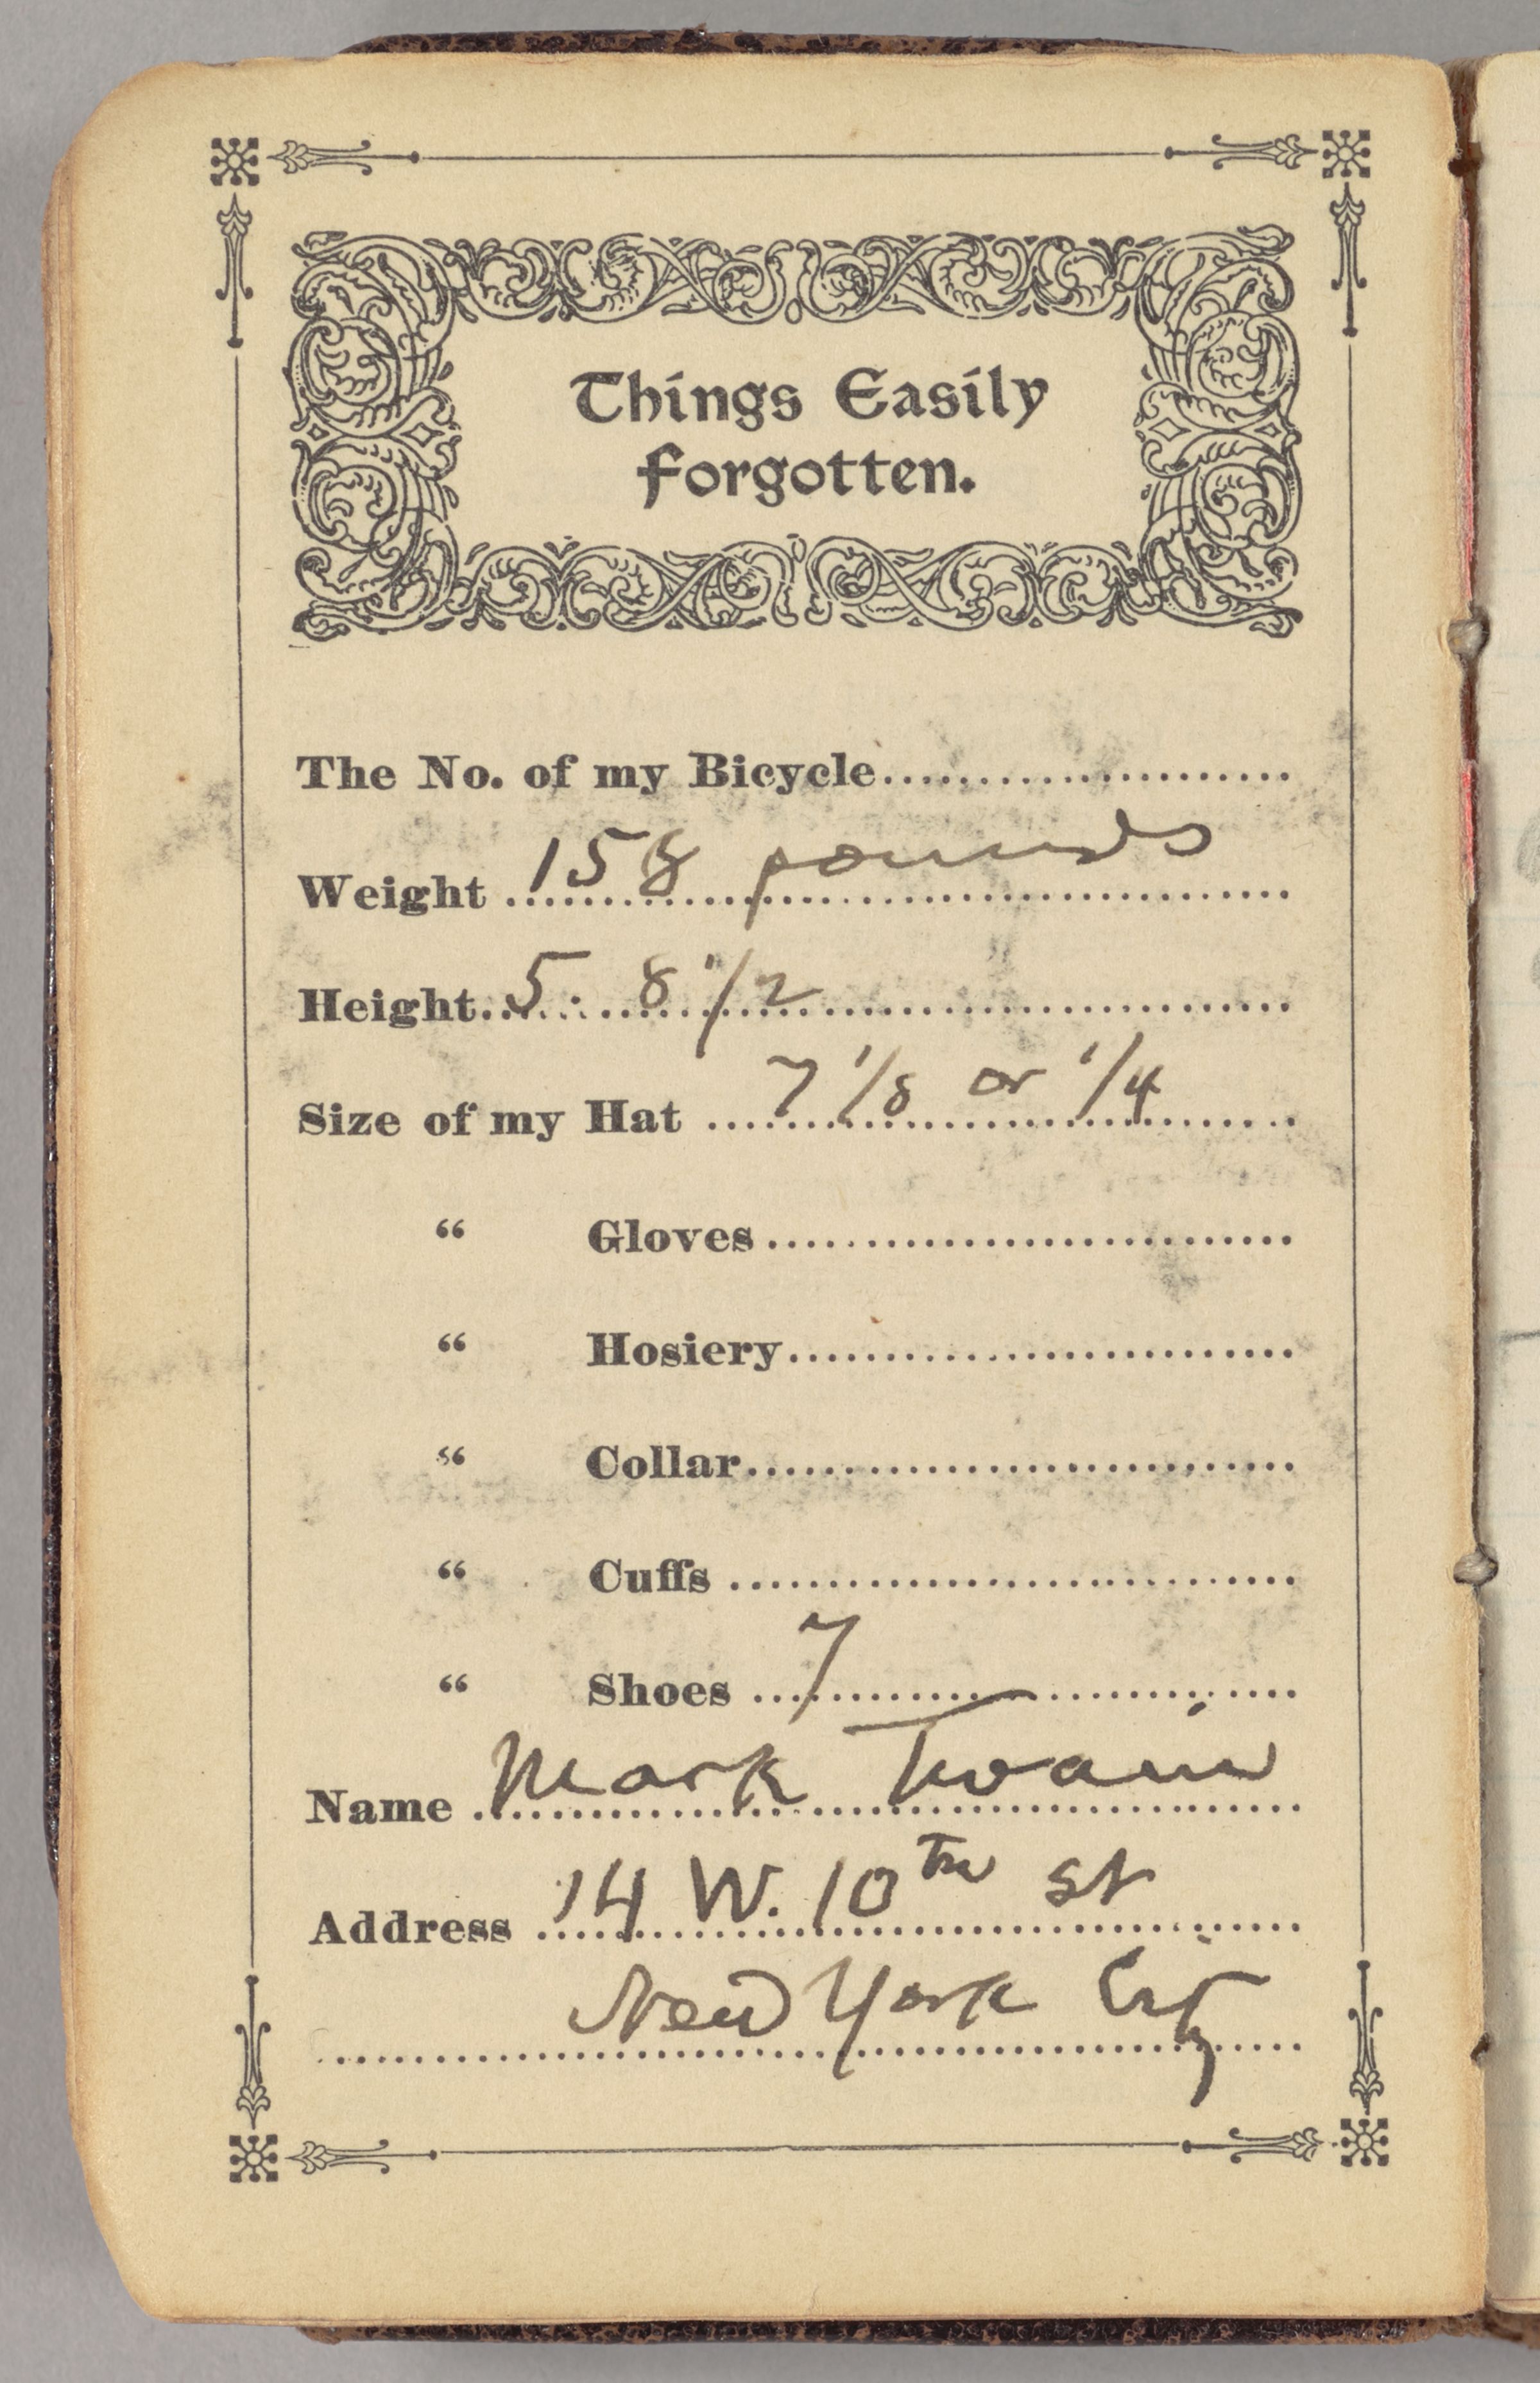 Things Easily
Forgotten.
The No. of my Bicycle......................
Weight ...... 158 pounds
Height...... 5 : 8 1/2
Size of my Hat ...... 7 1/8 or 1/4
“ Gloves......................
“ Hosiery......................
“ Collar......................
“ Cuffs ......................
“ Shoes ...... 7
Name ...... Mark Twain
Address ...... 14 W. 10th St
New York City